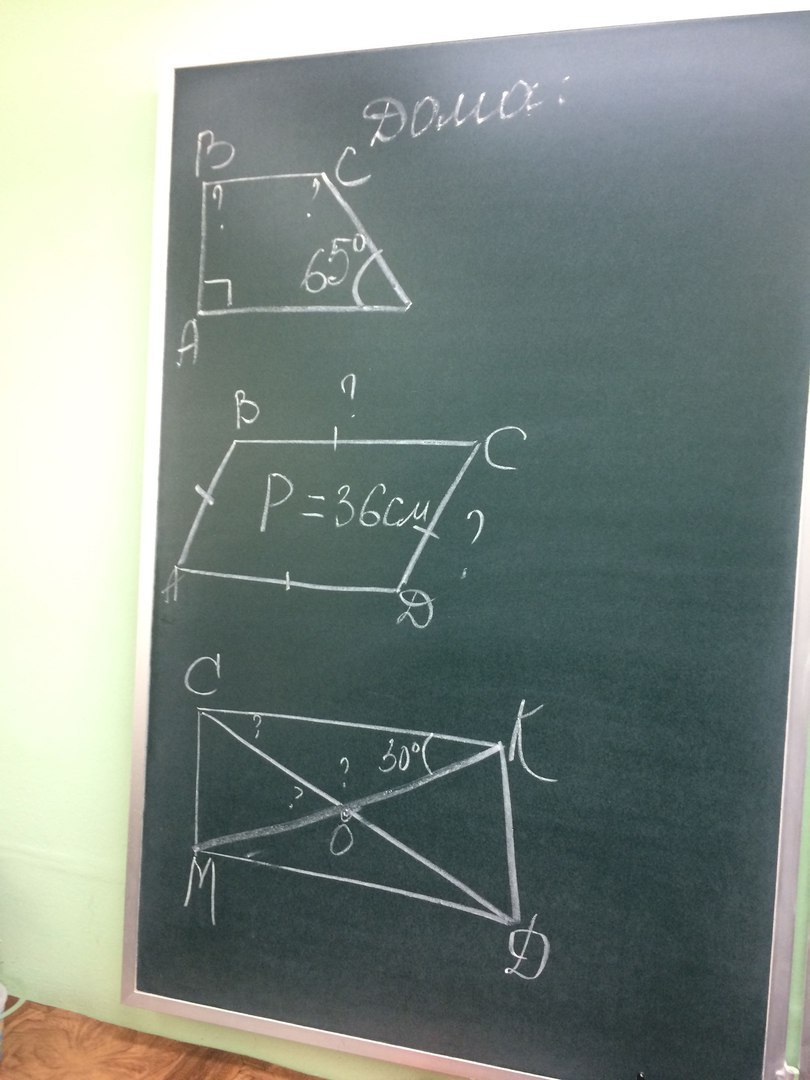 Дома:
B
C
?
?
65°
A
?
B
C
P = 36 см
?
A
D
C
K
?
30°
?
?
O
M
D